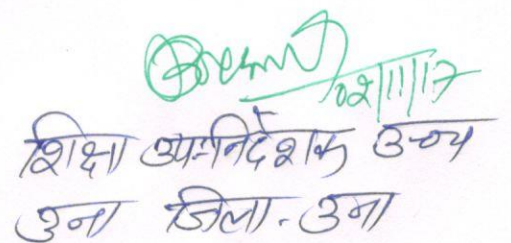 02/11/17
शिक्षा उप-निर्देशक उच्च
उना जिला - उना